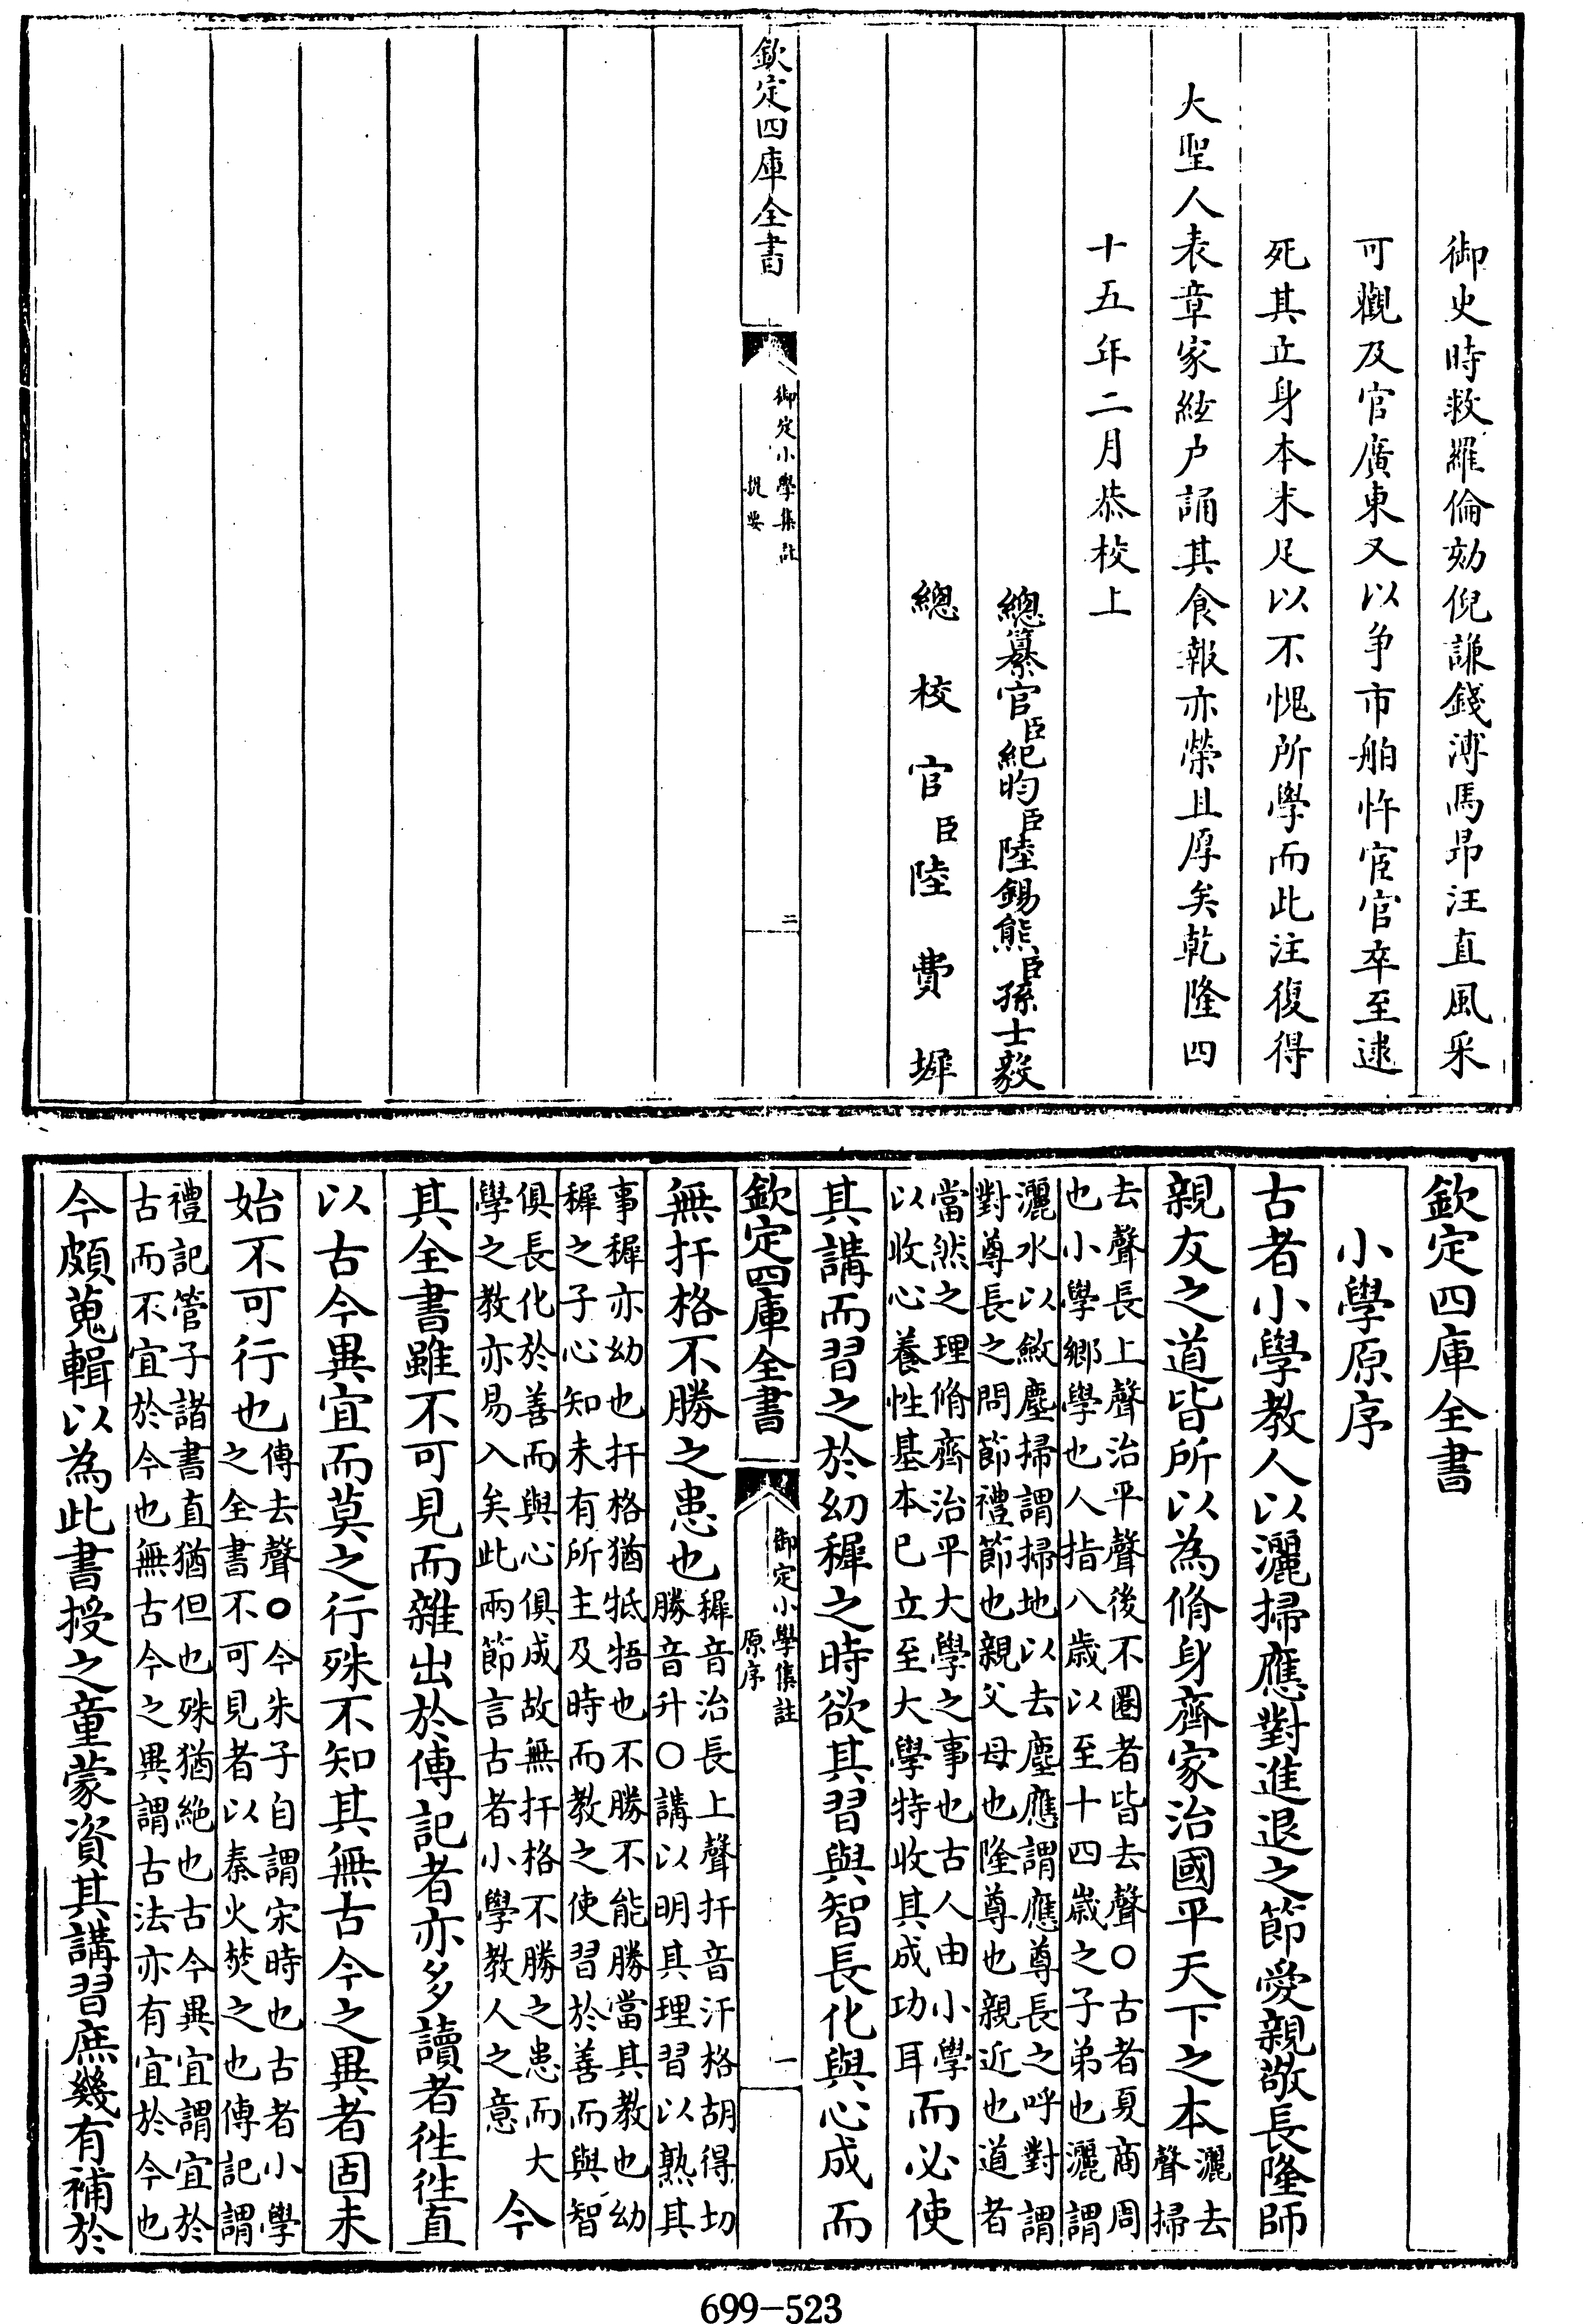 御史時救羅倫劾倪謙錢溥馬昂汪直風采
可觀及官廣東又以争市舶忤宦官卒至逮
死其立身本末足以不愧所學而此注復得
大聖人表章家絃户誦其食報亦榮且厚矣乾隆四
十五年二月恭校上
總纂官臣紀昀臣陸錫熊臣孫士毅
總校官臣陸費墀
欽定四庫全書
御定小學集註
提要
二
欽定四庫全書
小學原序
古者小學教人以灑掃應對進退之節愛親敬長隆師
親友之道皆所以為脩身齊家治國平天下之本灑去聲掃去
去聲長上聲治平聲後不圈者皆去聲○古者夏商周
也小學鄉學也人指八歲以至十四歲之子弟也灑謂
灑水以斂塵掃謂掃地以去塵應謂應尊長之呼對謂
對尊長之問節禮節也親父母也隆尊也親近也道者
當然之理脩齊治平大學之事也古人由小學
以收心養性基本已立至大學特收其成功耳而必使
其講而習之於幼穉之時欲其習與智長化與心成而
欽定四庫全書
御定小學集註
原序
一
無扞格不勝之患也穉音治長上聲扞音汗格胡得切
勝音升○講以明其理習以熟其
事穉亦幼也扞格猶牴牾也不勝不能勝當其教也幼
穉之子心知未有所主及時而教之使習於善而與智
俱長化於善而與心俱成故無扞格不勝之患而大
學之教亦易入矣此兩節言古者小學教人之意今
其全書雖不可見而雜出於傳記者亦多讀者徃徃直
以古今異宜而莫之行殊不知其無古今之異者固未
始不可行也傳去聲○今朱子自謂宋時也古者小學
之全書不可見者以秦火焚之也傳記謂
禮記管子諸書直猶但也殊猶絶也古今異宜謂宜於
古而不宜於今也無古今之異謂古法亦有宜於今也
今頗蒐輯以為此書授之童蒙資其講習庶幾有補於
699-523